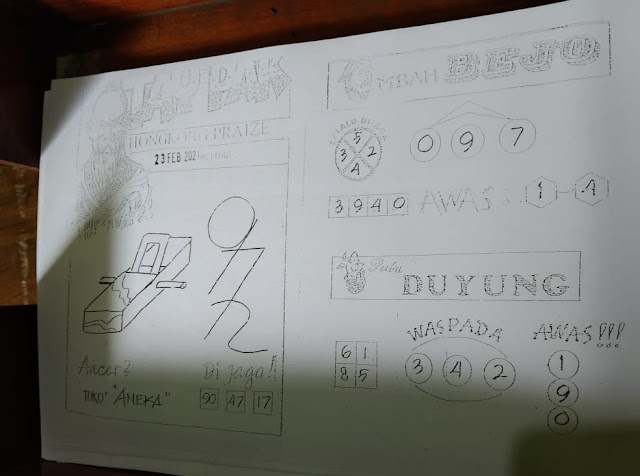 HONGKONG PRAIZE
23 FEB 202
Ancer?
TOKO "ANEKA"
Di jaga!!
90 47 17
MBAH BEJO
5
3 2
4
0 9 7
3 9 4 0
AWAS : 1 - 4
Putri
DUYUNG
6 1
8 5
WASPADA
3 4 2
AWAS!!!
1
9
0